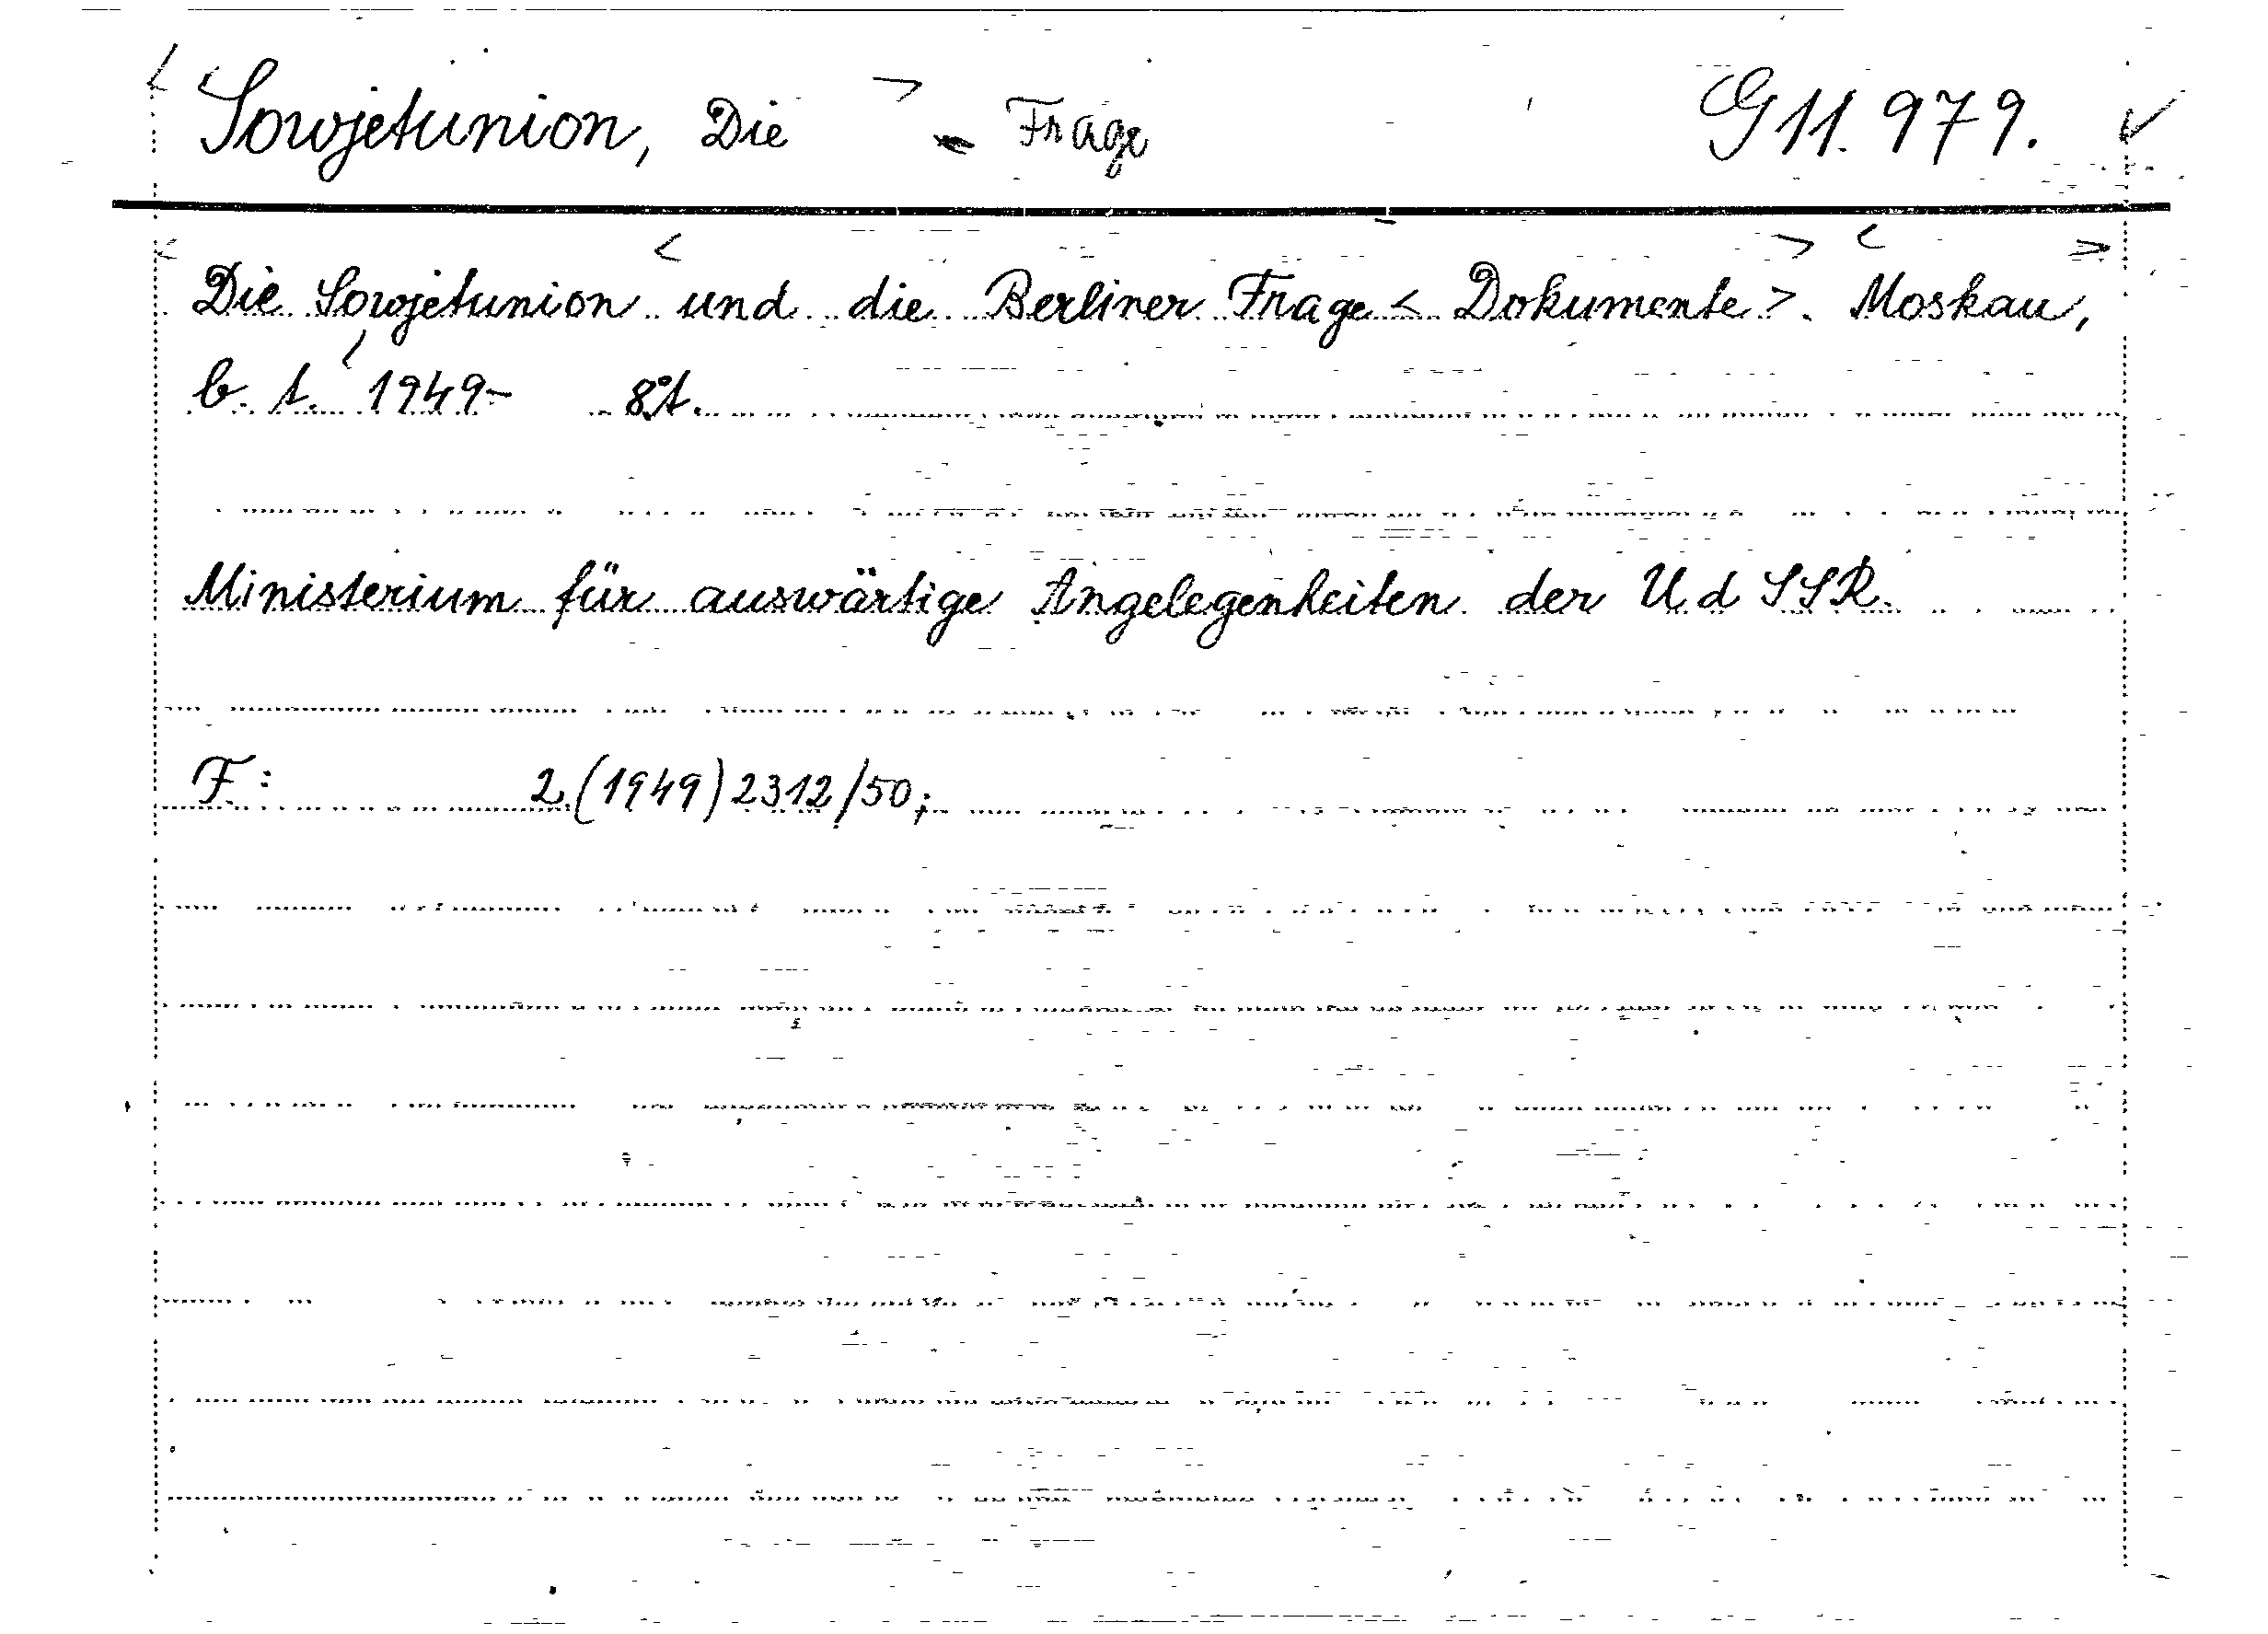 Sowjetunion, Die - Frage G 11.979.
Die Sowjetunion und die Berliner Frage < Dokumente >. Moskau,
b. t. 1949- 8°t.
Ministerium für auswärtige Angelegenheiten der U d SSR.
F: 2.(1949) 2312/50;